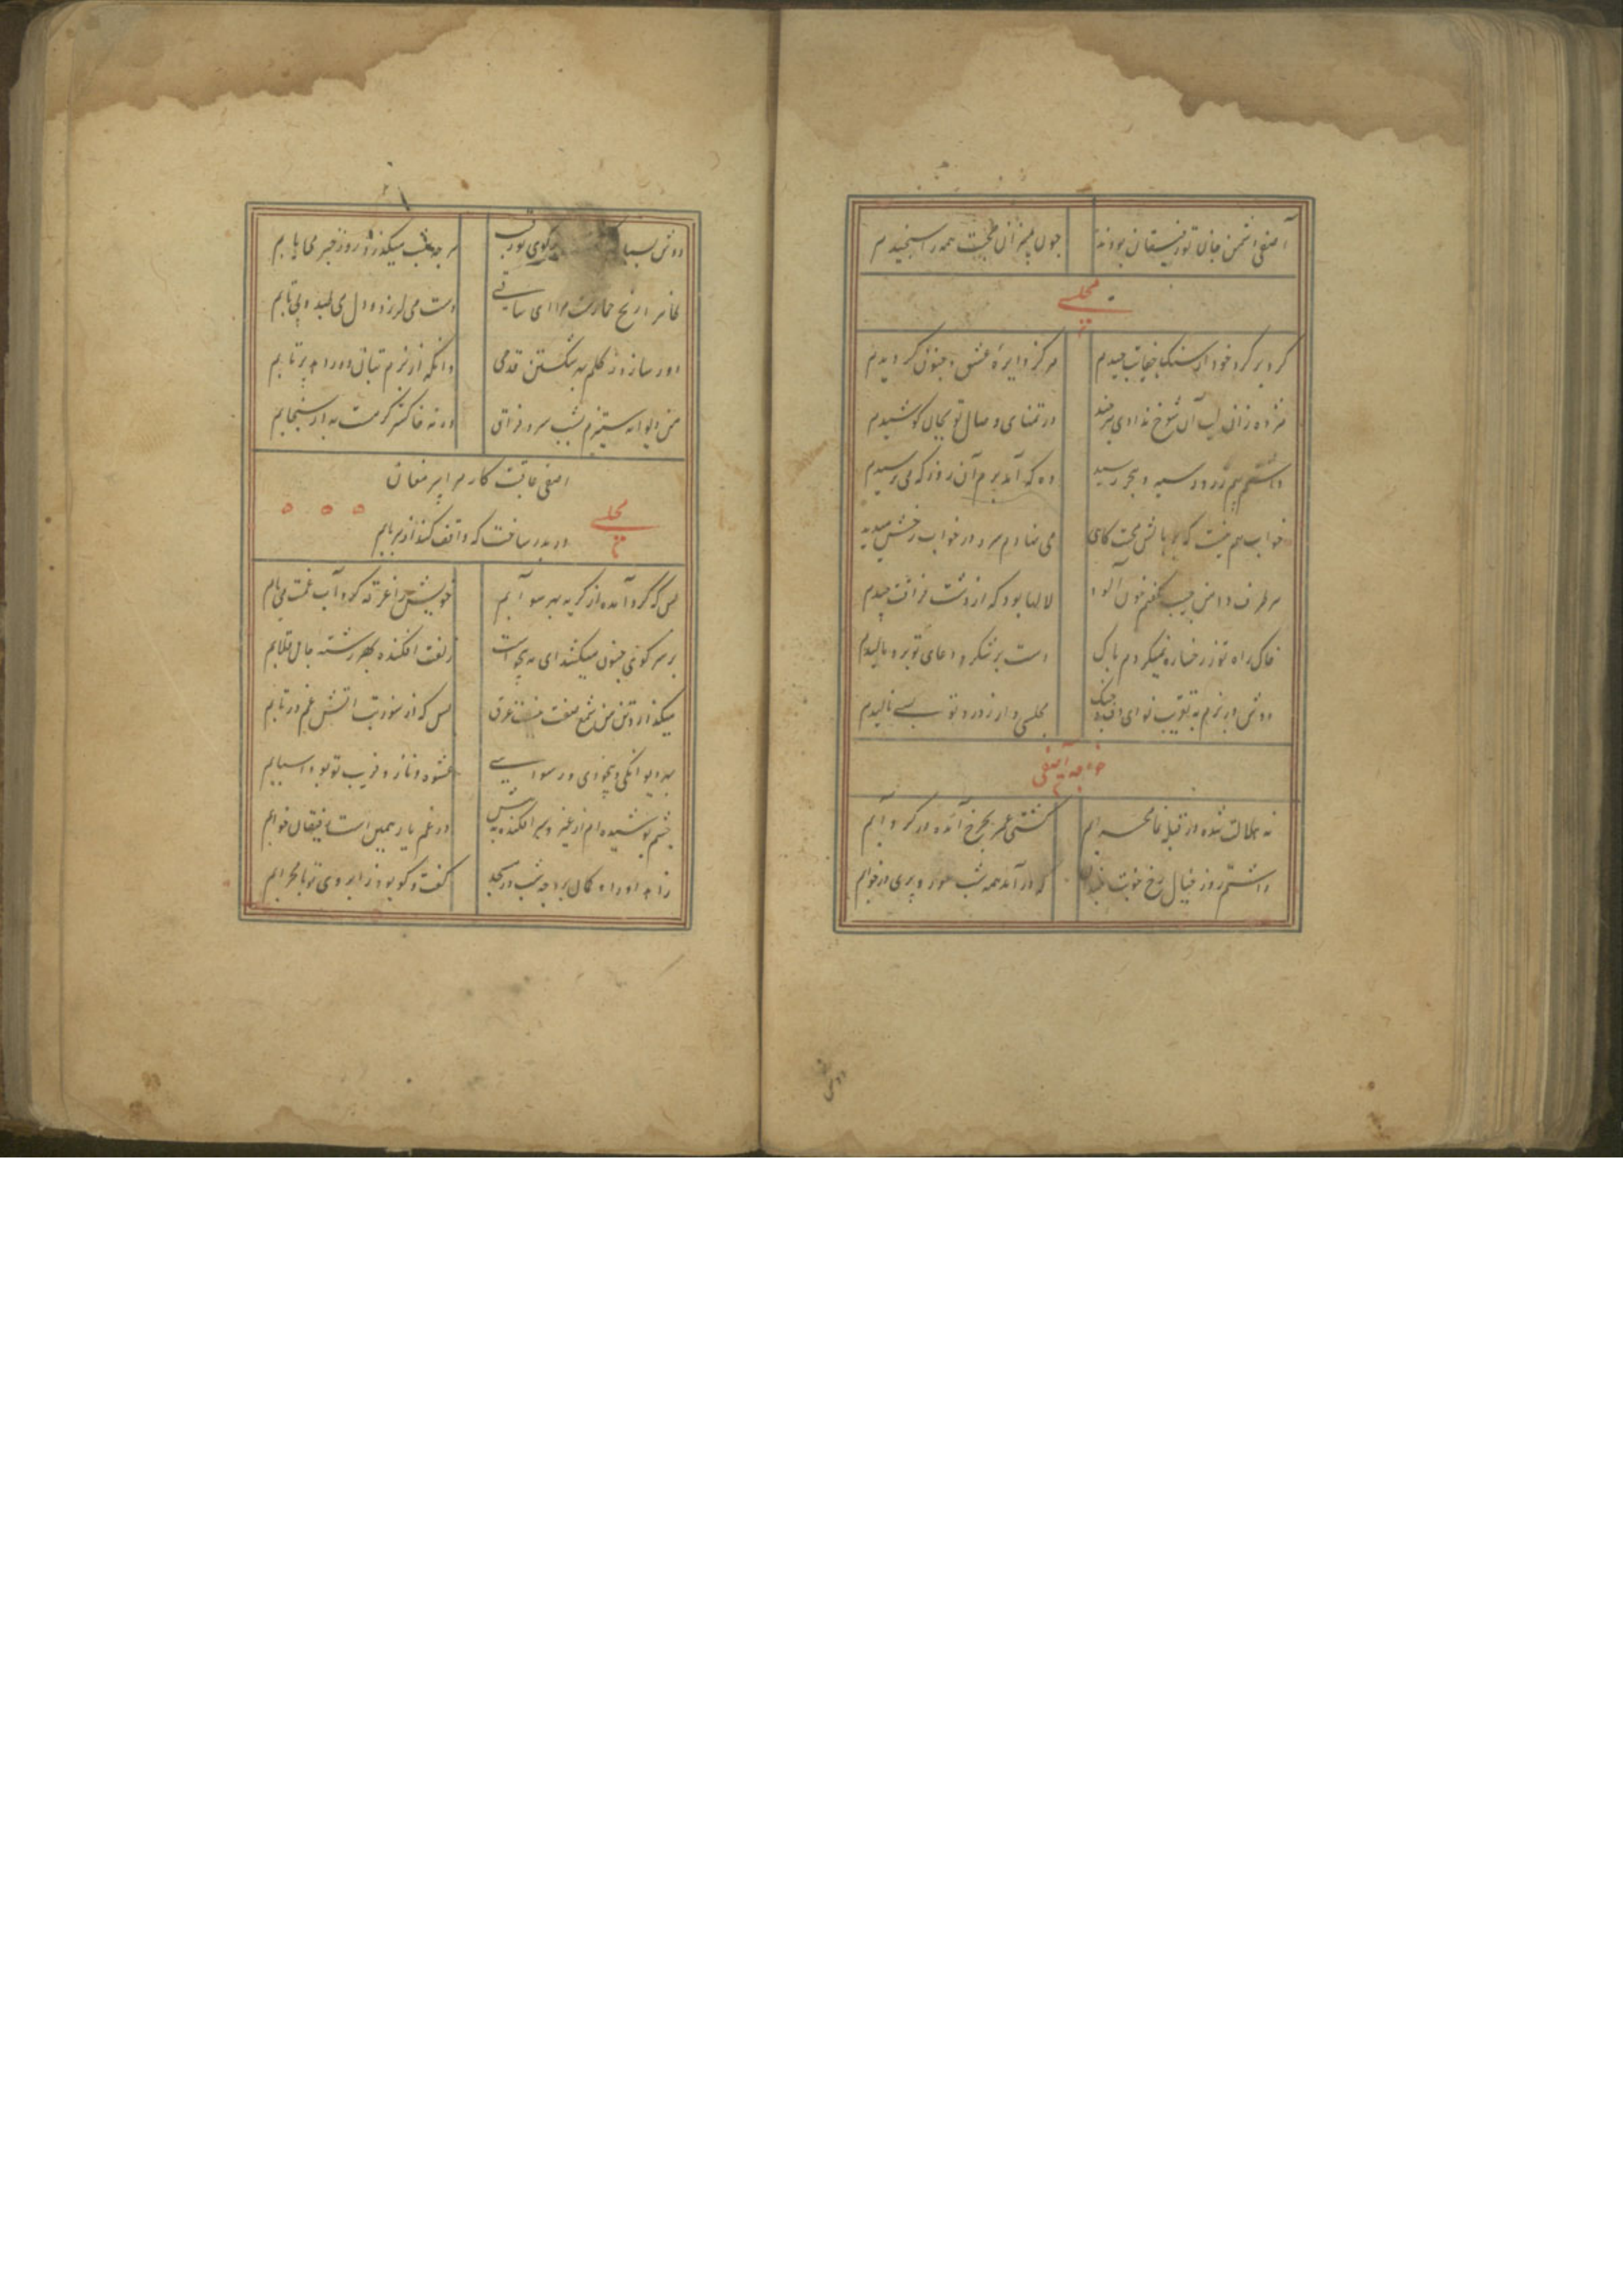 آصفی دشمن جان تو رفیقان بودند چون بمیزان محبت همه را سنجیدم
مجلسی
کرد بر کرد خود از سنک جفایت چیدم مرکز دایره عشق و جنون کردیدم
مژده زان لب آن شوخ ندادی هر چند در تمنای وصال تو بجان کوشیدم
داشتم بیم ز روز سیه و هجر رسید وه که آمد برم آن روز که می ترسیدم
خواب هم نیست که بر بالش بخت کاهی می نهادم سر و در خواب رخش میدیدم
هر طرف دامن جیب کفنم خون آلود لالها بود که از دشت فراقت چیدم
خاک راه تو ز رخساره نمیکردم پاک دست بر شکر و دعای تو برو مالیدم
دوش در بزم به تقریب نوای دف و چنک مجلسی وار ز درد تو بسی نالیدم
خواجه آصفی
نه هلالت شده در قبله نما محرابم کشتی عمر بچرخ آمده در کردابم
داشتم روز خیال رخ خوبت که در آمد همه شب حور و پری در خوابم
دوش
دوش بسیار کوی تو رقیب هر چه شب میکذرد روز خبر می یابم
رنج خمارست مرا ای ساقی دست می لرزد و دل می طپد و بی تابم
دور ساز و ز کلم به شکستن قدحی وانکه از بزم بتان دور دهد پرتابم
من دیوانه ستیزم شب سرد فراق ورنه خاکستر کرمست به از سنجابم
آصفی عاقبت کار مرا پیر مغان
مجلسی
در بدر ساخت که واقف کند از هر بابم
بس که کرد آمده از کریه بهر سو آبم خویش را غرقه کرد آب غمت می یابم
بر سر کوی جنون میکشد ای مه بچه ات زلفت افکنده بهر رشته جان قلابم
میکدازد تن من شمع صفت غرق بس که از سوز تب آتش غم در تابم
به دیوانکی و بیخودی و رسوایی عشوه و ناز و فریب تو بود اسبابم
چشم پوشیده ام از غیر و سر افکنده به پیش در غم یار همین است رفیقان خوابم
زاهد اوراد کان برد چه شب در مسجد کفت و کو بود ز ابروی تو با محرابم